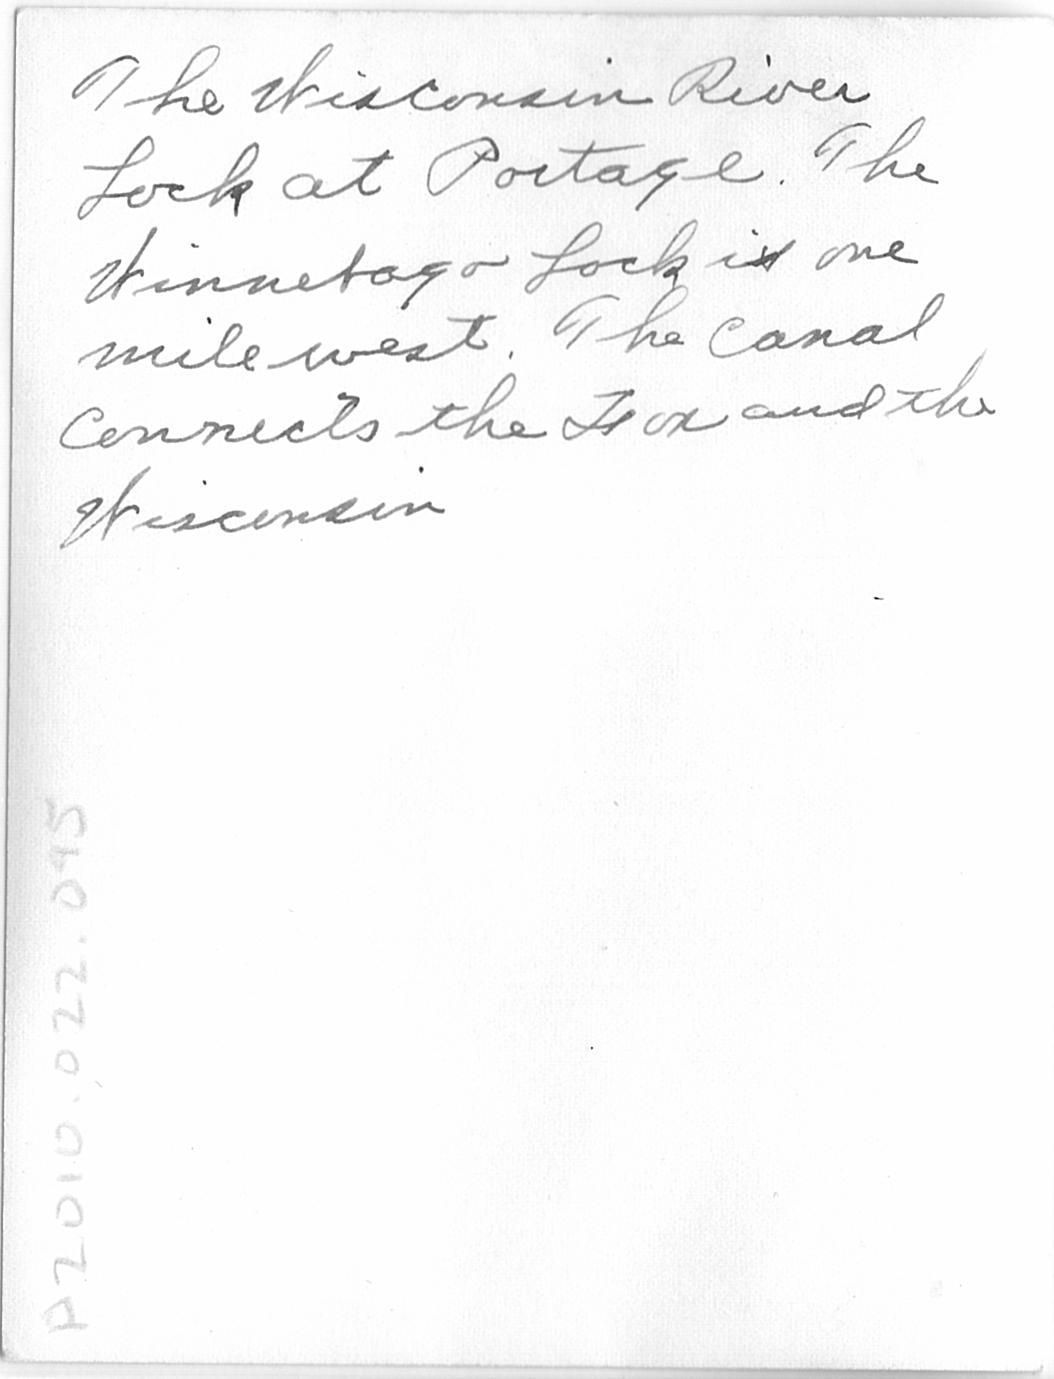 The Wisconsin River
Lock at Portage. The
Winnebago Lock is one
mile west. The Canal
connects the Fox and the
Wisconsin
P2010.022.095